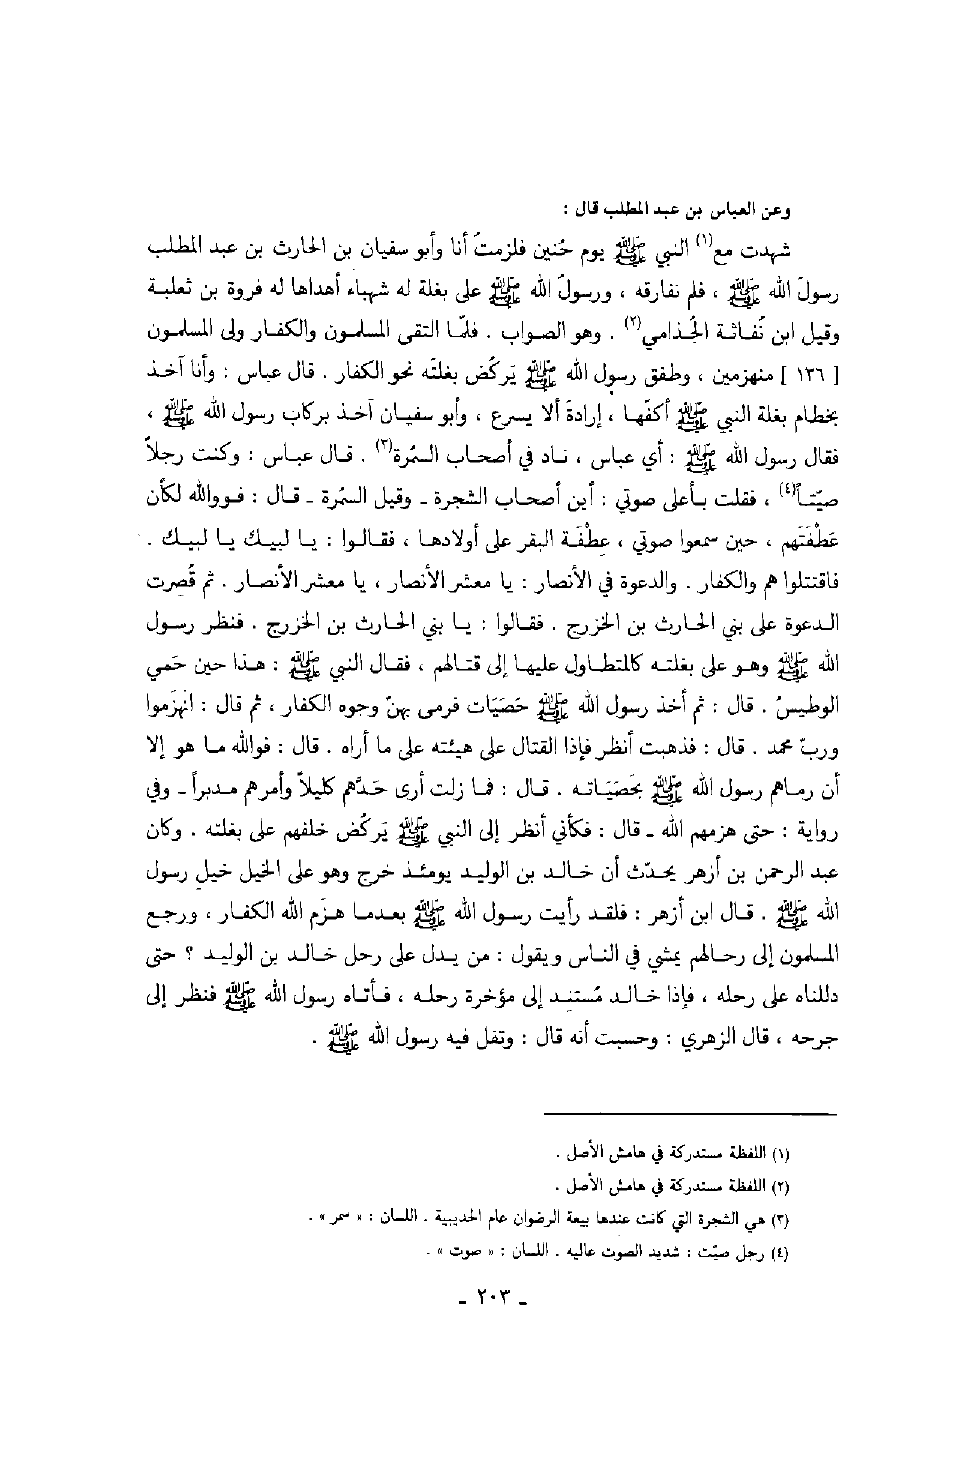 وعن العباس بن عبد المطلب قال :
شهدت مع(١) النبي ﷺ يوم حُنين فلزمتُ أنا وأبو سفيان بن الحارث بن عبد المطلب
رسولَ الله ﷺ ، فلم نفارقه ، ورسولُ الله ﷺ على بغلة له شهباء أهداها له فروة بن ثعلبة
وقيل ابن نُفاثة الجُذامي(٢) . وهو الصواب . فلمّا التقى المسلمون والكفار ولى المسلمون
[ ١٣٦ ] منهزمين ، وطفق رسول الله ﷺ يَركُض بغلتَه نحو الكفار . قال عباس : وأنا آخذ
بخطام بغلة النبي ﷺ أكفّها ، إرادةَ ألا يسرع ، وأبو سفيان آخذ بركاب رسول الله ﷺ ،
فقال رسول الله ﷺ : أي عباس ، ناد في أصحاب السَّمُرة(٣) . قال عباس : وكنت رجلاً
صيّتاً(٤) ، فقلت بأعلى صوتي : أين أصحاب الشجرة ـ وقيل السَّمُرة ـ قال : فوالله لكأن
عَطْفَتَهم ، حين سمعوا صوتي ، عِطْفَة البقر على أولادها ، فقالوا : يا لبيك يا لبيك .
فاقتتلوا هم والكفار . والدعوة في الأنصار : يا معشر الأنصار ، يا معشر الأنصار . ثم قُصِرت
الدعوة على بني الحارث بن الخزرج . فقالوا : يا بني الحارث بن الخزرج . فنظر رسول
الله ﷺ وهو على بغلته كالمتطاول عليها إلى قتالهم ، فقال النبي ﷺ : هذا حين حَمي
الوطيسُ . قال : ثم أخذ رسول الله ﷺ حَصَيَات فرمى بهنّ وجوه الكفار ، ثم قال : انهَزَموا
وربّ محمد . قال : فذهبت أنظر فإذا القتال على هيئته على ما أراه . قال : فوالله ما هو إلا
أن رماهم رسول الله ﷺ بحَصَيَاته . قال : فما زلت أرى حَدَّهم كليلاً وأمرهم مدبراً ـ وفي
رواية : حتى هزمهم الله ـ قال : فكأني أنظر إلى النبي ﷺ يَركُض خلفهم على بغلته . وكان
عبد الرحمن بن أزهر يحدّث أن خالد بن الوليد يومئذ خرج وهو على الخيل خيل رسول
الله ﷺ . قال ابن أزهر : فلقد رأيت رسول الله ﷺ بعدما هزَم الله الكفار ، ورجع
المسلمون إلى رحالهم يمشي في الناس ويقول : من يدل على رحل خالد بن الوليد ؟ حتى
دللناه على رحله ، فإذا خالد مُستنِد إلى مؤخرة رحله ، فأتاه رسول الله ﷺ فنظر إلى
جرحه ، قال الزهري : وحسبت أنه قال : وتفل فيه رسول الله ﷺ .
(١) اللفظة مستدركة في هامش الأصل .
(٢) اللفظة مستدركة في هامش الأصل .
(٣) هي الشجرة التي كانت عندها بيعة الرضوان عام الحديبية . اللسان : « سمر » .
(٤) رجل صيّت : شديد الصوت عاليه . اللسان : « صوت » .
ـ ٢٠٣ ـ